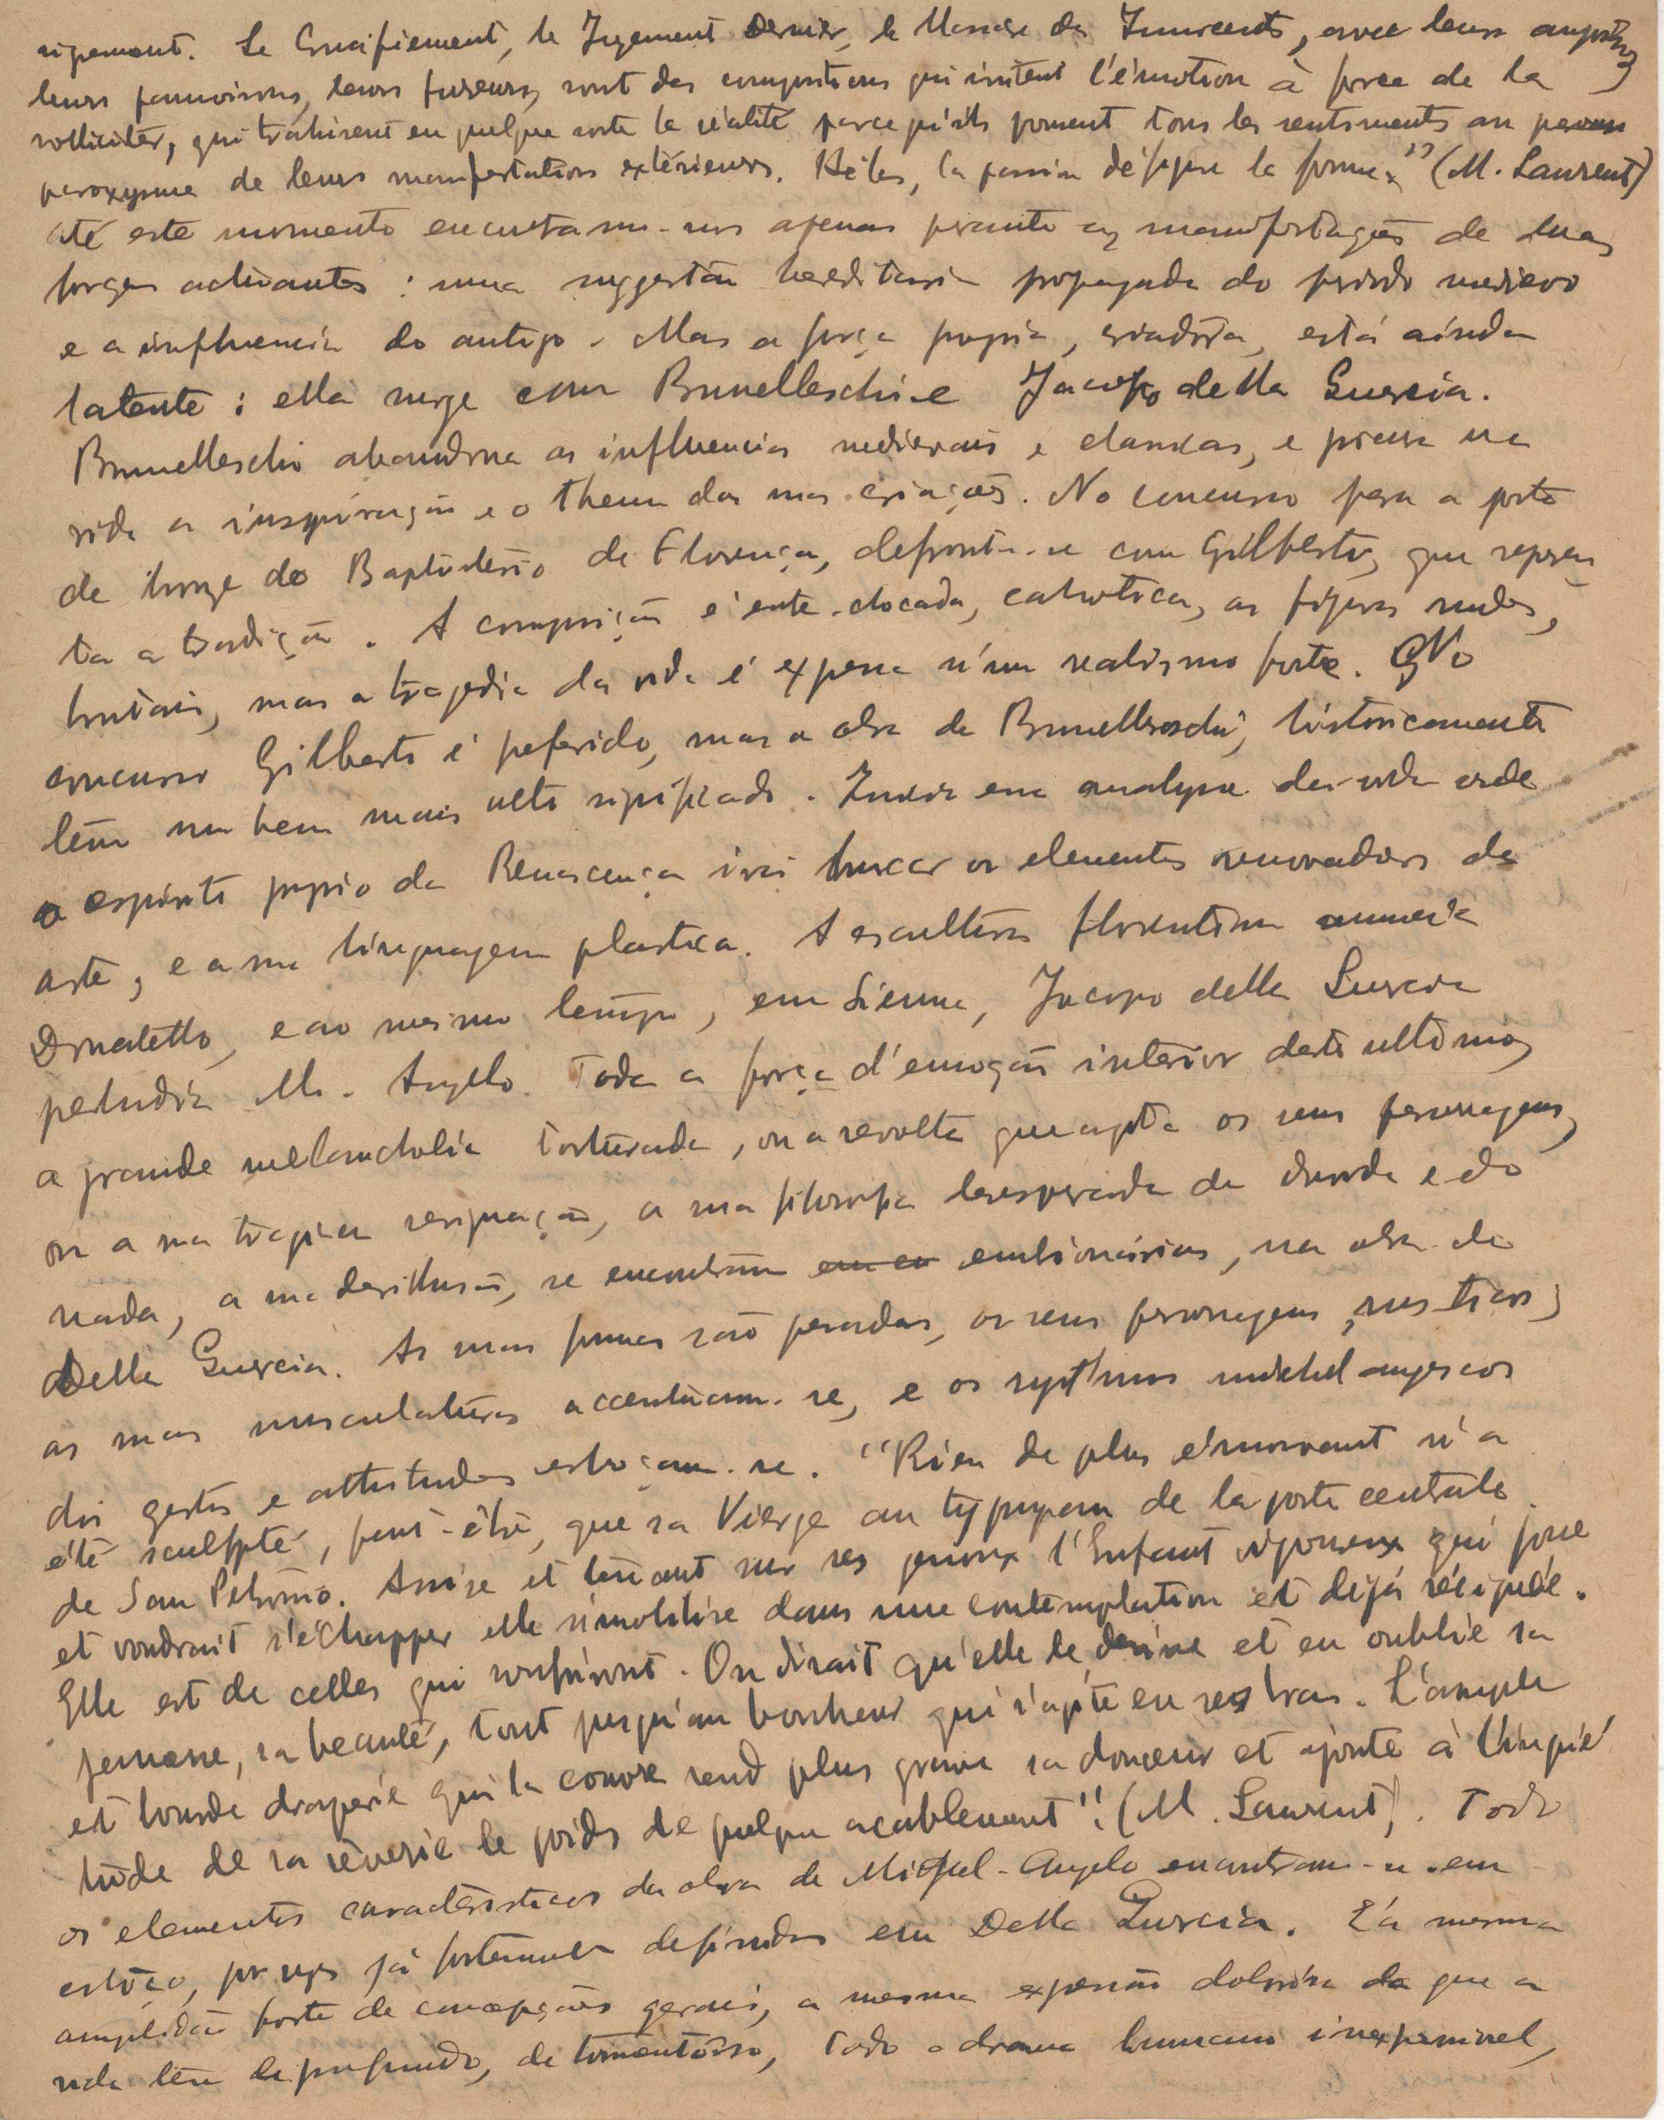 nipement. Le Crucifiement, le Jugement dernier, le Massacre des Innocents, avec leurs angoisses
leurs pamoisons, leurs fureurs, sont des compositions qui irritent l'émotion à force de la
solliciter, qui trahissent en quelque sorte la réalité parce qu'ils poussent tous les sentiments au
paroxysme de leurs manifestations extérieurs. Hélas, la passion défigure la forme." (M. Laurent)
Até este momento encontramo-nos apenas perante as manifestações de duas
forças activantes: uma suggestão hereditaria propagada do periodo medievo
e a influencia do antigo. Mas a força propria, criadora, está ainda
latente: ella surge com Brunelleschi e Jacopo della Guercia.
Brunelleschi abandona as influencias medievais e classicas, e procura na
vida a inspiração e o thema das suas criações. No concurso para a porta
de bronze do Baptisterio de Florença, defronta-se com Gilberto, que represen
ta a tradição. A composição é entre-chocada, cahotica, as figuras rudes,
brutais, mas a tragedia da vida é expressa n'um realismo forte. No
concurso Gilberto é preferido, mas a obra de Brunelleschi, historicamente
tem um bem mais alto significado. Inicia essa analyse da vida onde
o espirito proprio da Renascença irá buscar os elementos renovadores da
arte, e a sua linguagem plastica. A escultura florentina anuncia
Donatello, e ao mesmo tempo, em Sienna, Jacopo della Guercia
preludia M. Angelo. Toda a força d'emoção interior deste ultimo,
a grande melancholia torturada, ou a revolta que agita os seus personagens,
ou a sua tragica resignação, a sua filosofia desesperada da duvida e do
nada, a sua desillusão, se encontram embrionárias, na obra de
Della Guercia. As suas formas são pesadas, os seus personagens, rusticos;
as suas musculaturas accentuam-se, e os rythmos michelangescos
dos gestos e attitudes esboçam-se. "Rien de plus émouvant n'a
été sculpté, peut-être, que sa Vierge au tympan de la porte centrale
de San Petronio. Assise et tenant sur ses genoux l'Enfant vigoureux qui joue
et voudrait s'échapper elle s'imobilise dans une contemplation et déjà résignée.
Elle est de celles qui souffriront. On dirait qu'elle le devine et en oublie sa
jeunesse, sa beauté, tout jusqu'au bonheur qui s'agite en ses bras. L'ample
et lourde draperie qui la couvre rend plus grave sa douceur et ajoute à l'inquié
tude de sa rêverie le poids de quelque acablement". (M. Laurent). Todos
os elementos caracteristicos da obra de Miguel-Angelo encontram-se em
esboço, por vezes já fortemente definidos em Della Guercia. É a mesma
amplidão forte de concepções gerais, a mesma expressão dolorosa do que a
vida tem de profundo, de tormentoso, todo o drama humano inexprimivel,